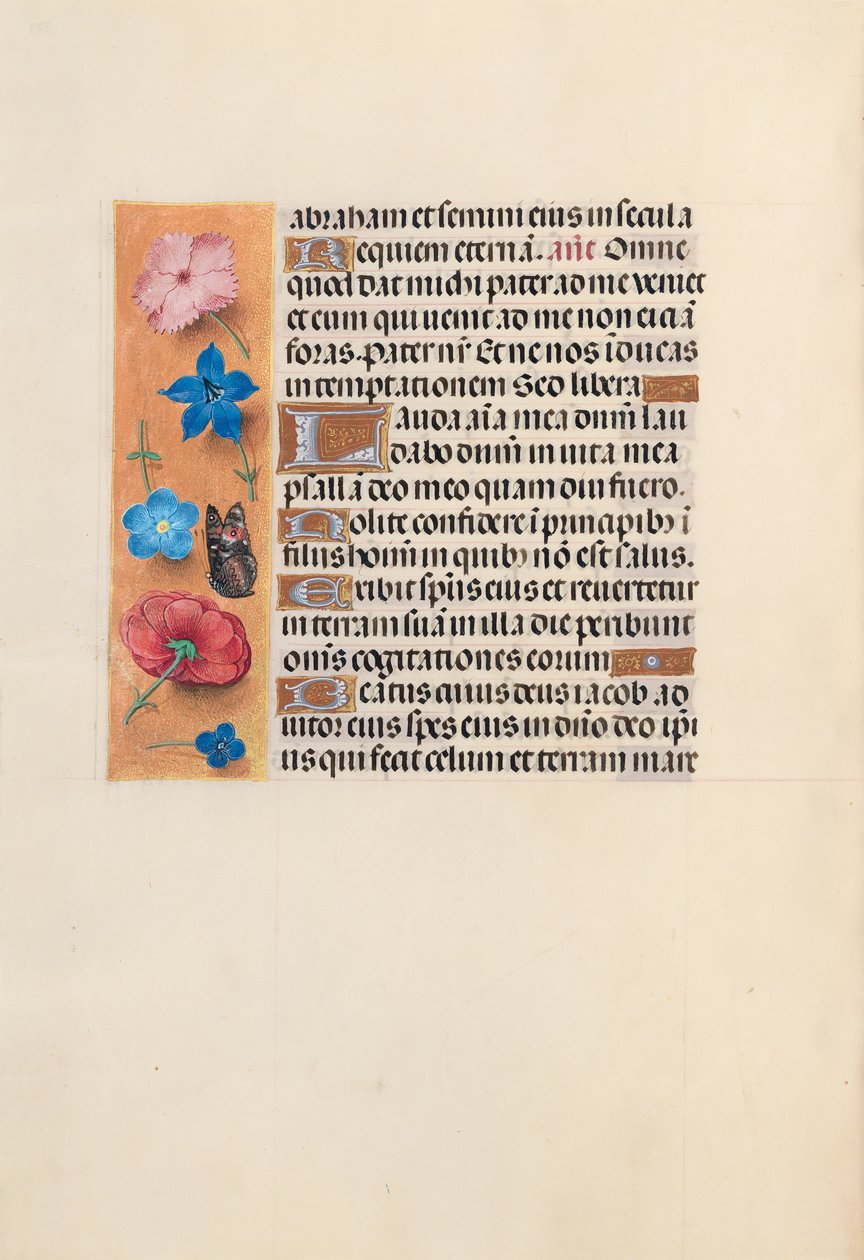 abraham et semini eius in secula
Requiem eternā. añe Omne
quod dat michi pater ad me veniet
et eum qui uenit ad me non eiciā
foras. Pater nr̄ Et ne nos īducas
in temptationem Sed libera
Lauda aīa mea dnm̄ lau
dabo dnm̄ in uita mea
psallā deo meo quam diu fuero.
Nolite confidere ī principibꝫ ī
filiis hoīm in quibꝫ nō est salus.
Exibit sp̄us eius et reuertetur
in terram suā in illa die peribunt
om̄s cogitationes eorum
Beatus cuius deus iacob ad
iutor eius spes eius in dn̄o deo ip̄i
us qui fecit celum et terram mare